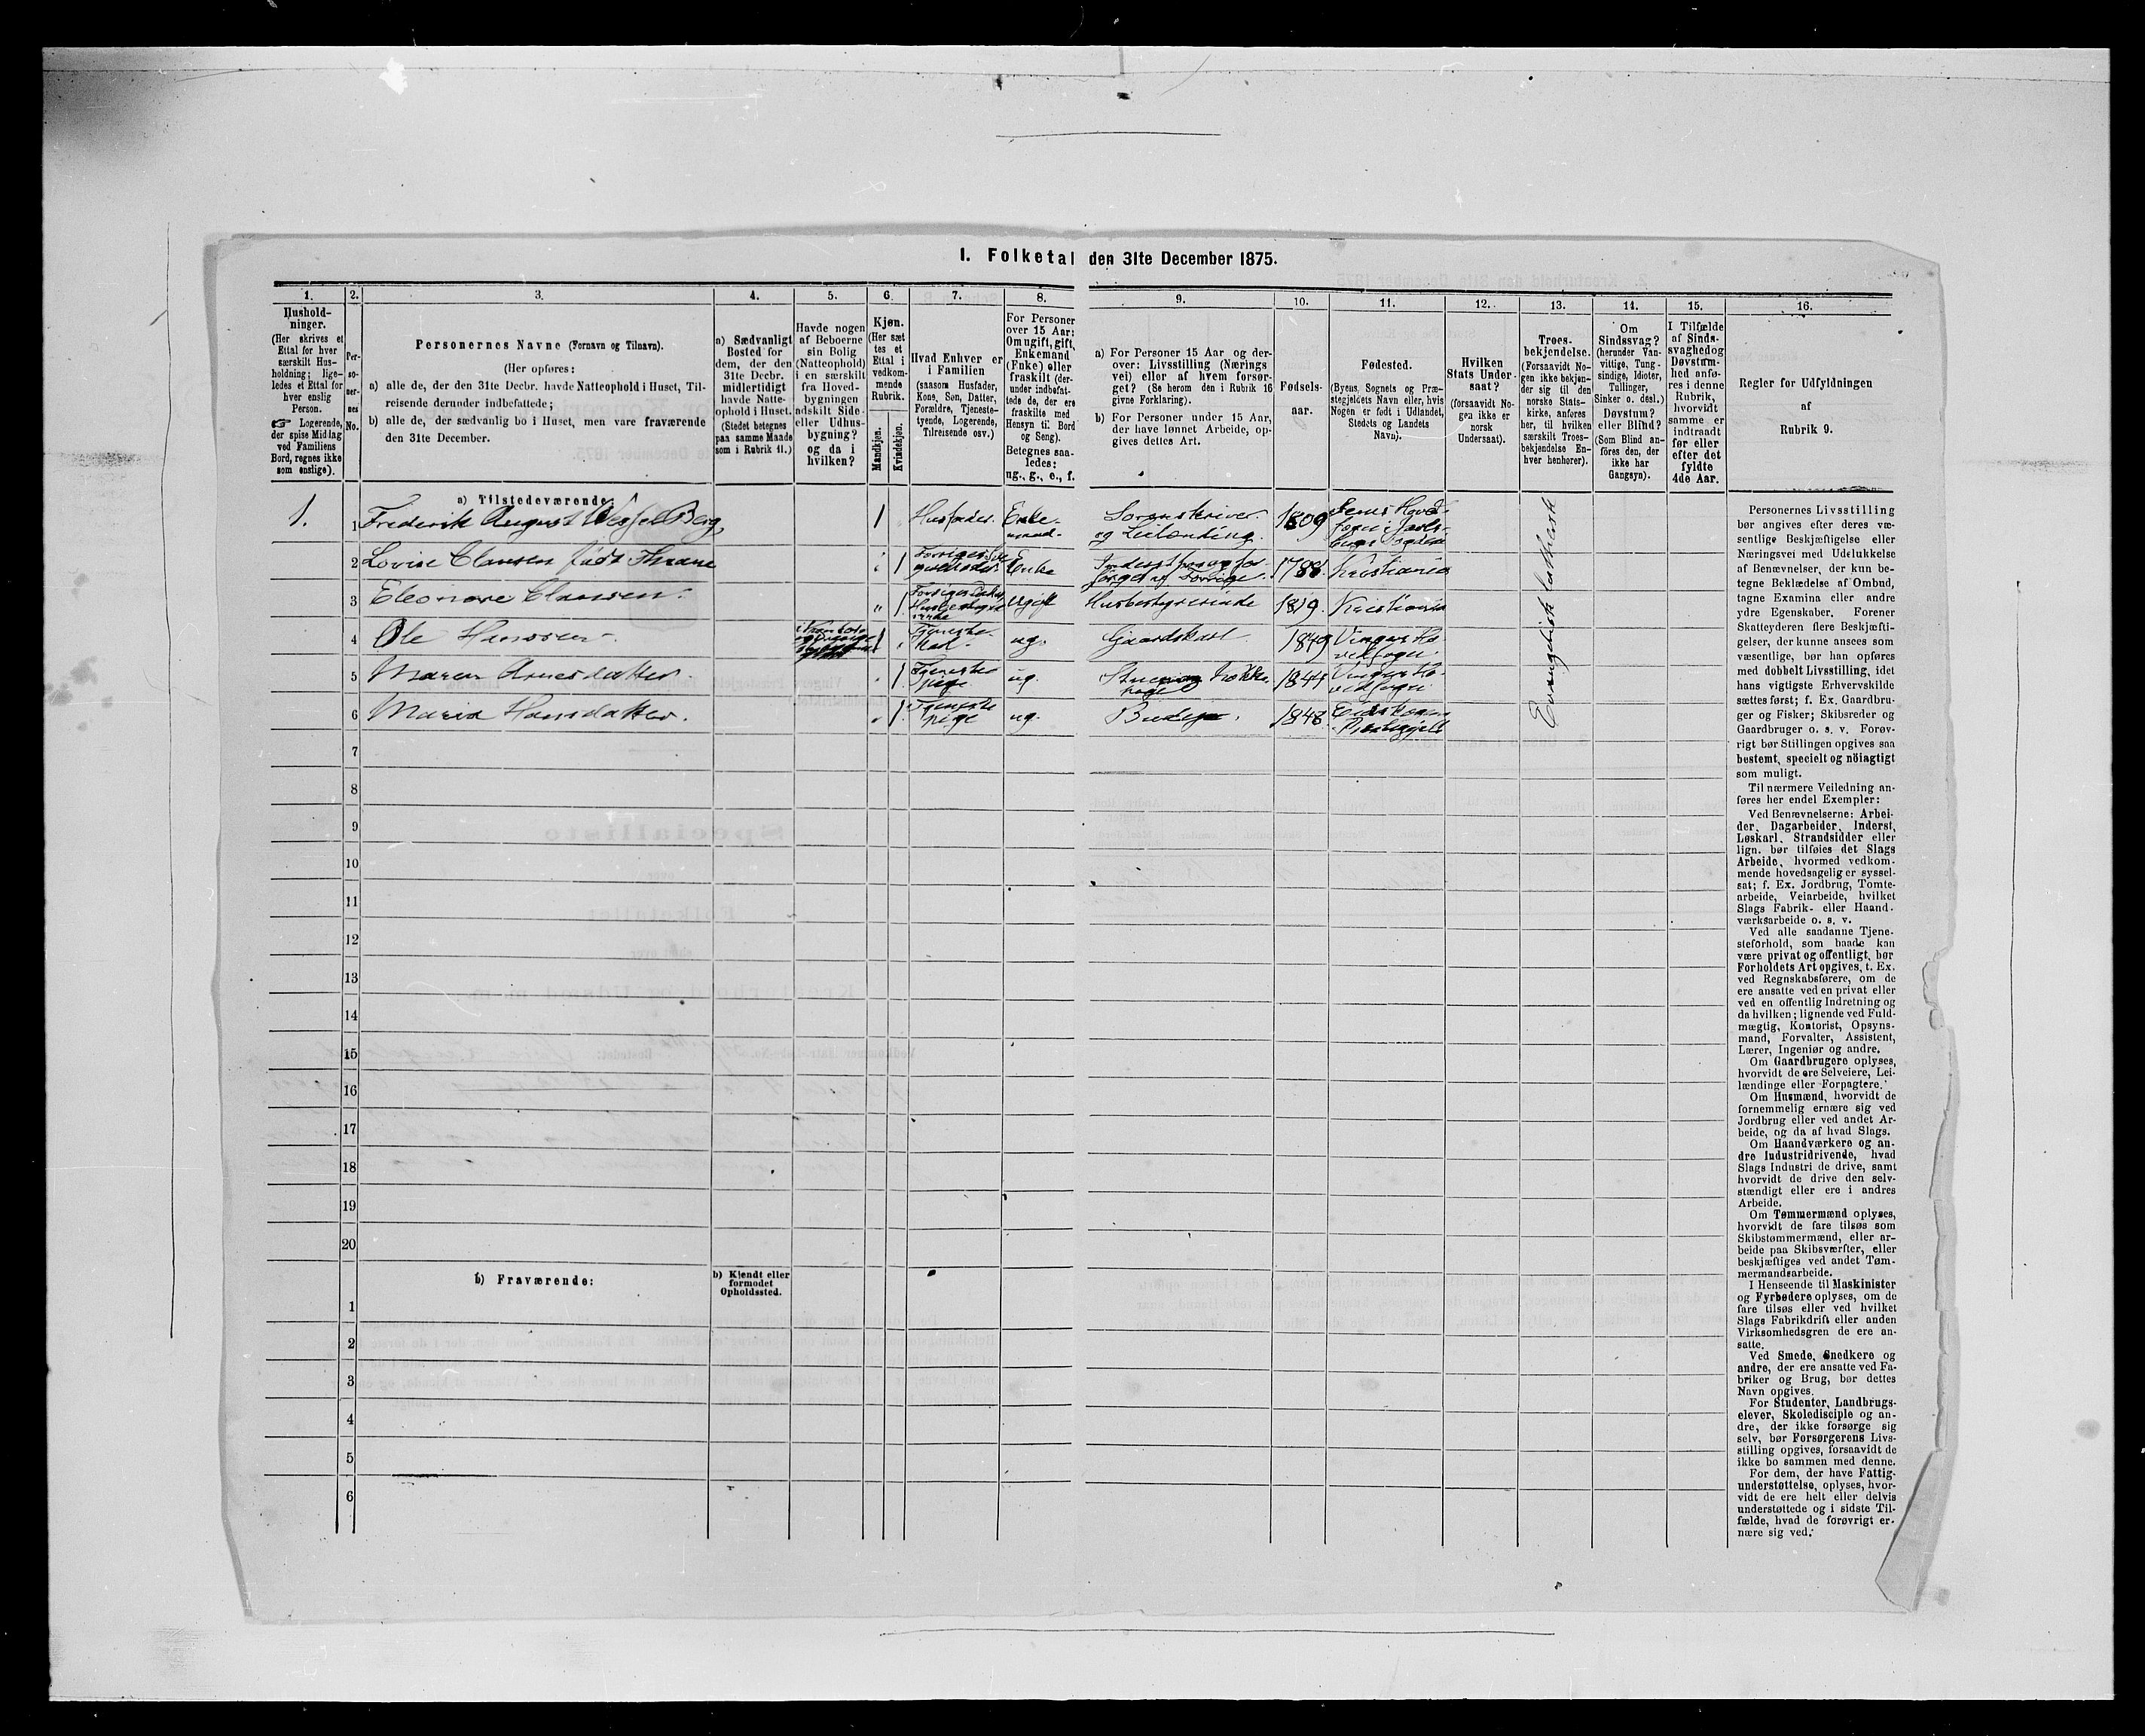 I. Folketal den 31te December 1875.
1. 2. 3. 4. 5. 6. 7. 8. 9. 10. 11. 12. 13. 14. 15. 16.
Hushold-
ninger.
(Her skrives et
Ettal for hver
særskilt Hus-
holdning; lige-
ledes et Ettal for
hver enslig
Person.
☞ Logerende,
der spise Middag
ved Familiens
Bord, regnes ikke
som enslige).
Per-
so-
ner-
nes
No.
Personernes Navne (Fornavn og Tilnavn).
(Her opføres:
a) alle de, der den 31te Decbr. havde Natteophold i Huset, Til-
reisende derunder indbefattede;
b) alle de, der sædvanlig bo i Huset, men vare fraværende
den 31te December.
a) Sædvanligt
Bosted for
dem, der den
31te Decbr.
midlertidigt
havde Natte-
ophold i Huset.
(Stedet betegnes
paa samme Maade
som i Rubrik 11.)
Havde nogen
af Beboerne
sin Bolig
(Natteophold)
i en særskilt
fra Hoved-
bygningen
adskilt Side-
eller Udhus-
bygning?
og da i
hvilken?
Kjøn.
(Her sæt
tes et
Ettal i
vedkom-
mende
Rubrik.
Mandkjøn.
Kvindekjøn.
Hvad Enhver er
i Familien
(saasom Husfader,
Kone, Søn, Datter,
Forældre, Tjeneste-
tyende, Logerende,
Tilreisende osv.)
For Personer
over 15 Aar:
Om ugift, gift,
Enkemand
(Enke) eller
fraskilt (der-
under indbefat-
tede de, der ere
fraskilte med
Hensyn til Bord
og Seng).
Betegnes saa-
ledes:
ug., g., e., f.
a) For Personer 15 Aar og der-
over: Livsstilling (Nærings
vei) eller af hvem forsør-
get? (Se herom den i Rubrik 16
givne Forklaring).
b) For Personer under 15 Aar,
der have lønnet Arbeide, op-
gives dettes Art.
Fødsels-
aar.
Fødested.
(Byens, Sognets og Præ-
stegjeldets Navn eller, hvis
Nogen er født i Udlandet,
Stedets og Landets
Navn).
Hvilken
Stats Under
saat?
(forsaavidt No-
gen ikke er
norsk
Undersaat).
Troes-
bekjendelse.
(Forsaavidt No-
gen ikke bekjen-
der sig til den
norske Stats-
kirke, anføres
her, til hvilken
særskilt Troes-
bekjendelse En-
hver henhører).
Om
Sindssvag?
(herunder Van-
vittige, Tung-
sindige, Idioter,
Tullinger,
Sinker o. desl.)
Døvstum?
eller Blind?
(Som Blind an-
føres den, der
ikke har
Gangsyn).
I Tilfælde
af Sinds-
svaghed og
Døvstum-
hed anfø-
res i denne
Rubrik,
hvorvidt
samme er
indtraadt
før eller
efter det
fyldte
4de Aar.
Regler for Udfyldningen
af
Rubrik 9.
a) Tilstedeværende:
1. 1 Frederik August Wessel Berg 1 Husfader. Enke-
mand. Sorenskriver
og Leilænding. 1809
2 Lovise Clausen født Thrane 1 Enke 1788 Kristiania
3 Eleonore Clausen. 1 ugift Husbestyrerinde 1819. Kristiania
4 Ole Hansen 1 Tjeneste-
Karl. ug. Gaardskarl. 1849 Vinger Ho-
vedsogn
5 Maren Arnesdatter. 1 Tjeneste
pige ug. Vinger Ho-
vedsogn
6 Maria Hansdatter. 1 Tjeneste
pige ug. Budeie. 1848 Eidskogen
Præstegjeld
Evangelisk luthersk
7
8
9
10
11
12
13
14
15
16
17
18
19
20
b) Fraværende:
b) Kjendt eller
formodet
Opholdssted.
1
2
3
4
5
6
Personernes Livsstilling
bør angives efter deres væ-
sentlige Beskjæftigelse eller
Næringsvei med Udelukkelse
af Benævnelser, der kun be-
tegne Beklædelse af Ombud,
tagne Examina eller andre
ydre Egenskaber. Forener
Skatteyderen flere Beskjæfti-
gelser, der kunne ansees som
væsentlige, bør han opføres
med dobbelt Livsstilling, idet
hans vigtigste Erhvervskilde
sættes først; f. Ex. Gaardbru-
ger og Fisker; Skibsreder og
Gaardbruger o. s. v. Forøv-
rigt bør Stillingen opgives saa
bestemt, specielt og nöiagtigt
som muligt.
Til nærmere Veiledning an-
føres her endel Exempler:
Ved Benævnelserne: Arbei-
der, Dagarbeider, Inderst,
Løskarl, Strandsidder eller
lign. bør tilføies det Slags
Arbeide, hvormed vedkom-
mende hovedsagelig er syssel-
sat; f. Ex. Jordbrug, Tomte-
arbeide, Veiarbeide, hvilket
Slags Fabrik- eller Haand-
værksarbeide o. s. v.
Ved alle saadanne Tjene-
steforhold, som baade kan
være privat og offentligt, bør
Forholdets Art opgives, t. Ex.
ved Regnskabsførere, om de
ere ansatte ved en privat eller
ved en offentlig Indretning og
da hvilken; lignende ved Fuld-
mægtig, Kontorist, Opsyns-
mand, Forvalter, Assistent,
Lærer, Ingeniør og andre.
Om Gaardbrugere oplyses,
hvorvidt de ere Selveiere, Lei-
lændinge eller Forpagtere.
Om Husmænd, hvorvidt de
fornemmelig ernære sig ved
Jordbrug eller ved andet Ar-
beide, og da af hvad Slags.
Om Haandværkere og an-
dre Industridrivende, hvad
Slags Industri de drive, samt
hvorvidt de drive den selv-
stændigt eller ere i andres
Arbeide.
Om Tømmermænd oplyses,
hvorvidt de fare tilsøs som
Skibstømmermænd, eller ar-
beide paa Skibsværfter, eller
beskjæftiges ved andet Tøm-
mermandsarbeide.
I Henseende til Maskinister
og Fyrbødere oplyses, om de
fare tilsøs eller ved hvilket
Slags Fabrikdrift eller anden
Virksomhedsgren de ere an-
satte.
Ved Smede, Snedkere og
andre, der ere ansatte ved Fa-
briker og Brug, bør dettes
Navn opgives.
For Studenter, Landbrugs-
elever, Skoledisciple og an-
dre, der ikke forsørge sig
selv, bør Forsørgerens Livs-
stilling opgives, forsaavidt de
ikke bo sammen med denne.
For dem, der have Fattig-
understøttelse, oplyses, hvor-
vidt de ere helt eller delvis
understøttede og i sidste Til-
fælde, hvad de forøvrigt er-
nære sig ved.